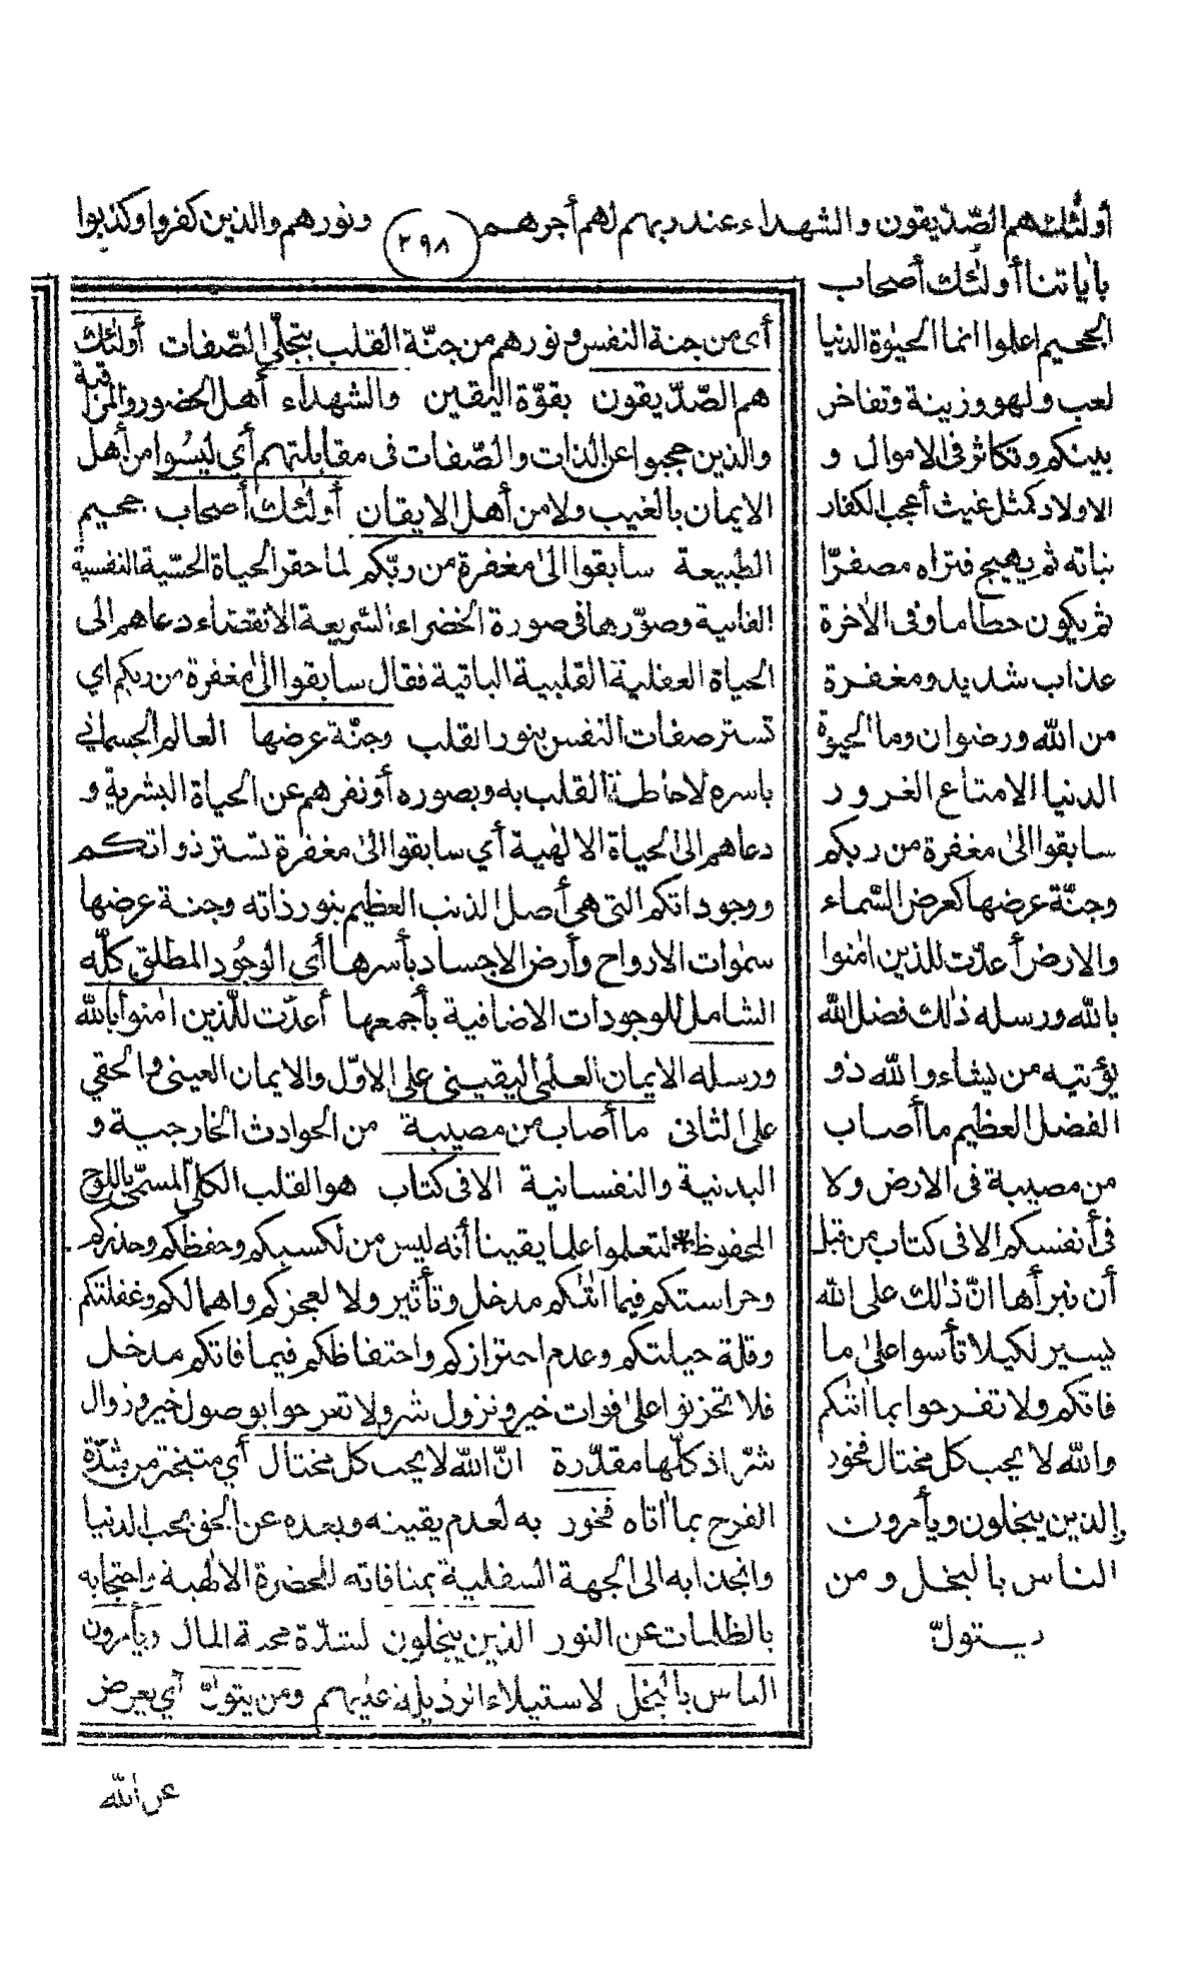 أولئك هم الصّدّيقون والشهداء عند ربهم لهم أجرهم ونورهم والذين كفروا وكذبوا
٢٩٨
باٰياتنا أولئك أصحاب
الجحيم اعلموا انما الحيٰوة الدنيا
لعب ولهو وزينة وتفاخر
بينكم وتكاثر فى الاموال و
الاولاد كمثل غيث أعجب الكفار
نباته ثم يهيج فتراه مصفرّا
ثم يكون حطاما وفى الاٰخرة
عذاب شديد ومغفرة
من الله ورضوان وما الحيوة
الدنيا الا متاع الغرور
سابقوا الى مغفرة من ربكم
وجنّة عرضها كعرض السّماء
والارض أعدّت للذين اٰمنوا
بالله ورسله ذٰلك فضل الله
يؤتيه من يشاء والله ذو
الفضل العظيم ما أصاب
من مصيبة فى الارض ولا
فى أنفسكم الا فى كتاب من قبل
أن نبرأها انّ ذٰلك على الله
يسير لكيلا تأسوا علىٰ ما
فاتكم ولا تفرحوا بما اٰتٰكم
والله لا يحب كل مختال فخور
الذين يبخلون ويأمرون
الناس بالبخل ومن
يتولّ
أى من جنة النفس ونورهم من جنّة القلب بتجلّي الصّفات أولئك
هم الصّدّيقون بقوّة اليقين والشهداء أهل الحضور والمراقبة
والذين حجبوا عن الذات والصّفات فى مقابلتهم أي ليسُوا من أهل
الايمان بالغيب ولا من أهل الايقان أولئك أصحاب جحيم
الطبيعة سابقوا الىٰ مغفرة من ربّكم لما حقر الحياة الحسّية النفسية
الفانية وصوّرها فى صورة الخضراء السّريعة الانقضاء دعاهم الى
الحياة العقلية القلبية الباقية فقال سابقوا الىٰ مغفرة من ربكم اي
تستر صفات النفس بنور القلب وجنّة عرضها العالم الجسماني
باسره لاحاطة القلب به وبصوره أو نفرهم عن الحياة البشرية و
دعاهم الى الحياة الالٰهية أي سابقوا الىٰ مغفرة تستر ذواتكم
ووجوداتكم التى هى أصل الذنب العظيم بنور ذاته وجنة عرضها
سمٰوات الارواح وأرض الاجساد بأسرها أى الوجُود المطلق كلّه
الشامل للوجودات الاضافية بأجمعها أعدّت للّذين اٰمنوا بالله
ورسله الايمان العلمى اليقينى على الاوّل والايمان العينى والحقي
على الثانى ما أصاب من مصيبة من الحوادث الخارجية و
البدنية والنفسانية الا فى كتاب هو القلب الكلىّ المسمّى باللوح
المحفوظ * لتعلموا علما يقينا أنه ليس من لكسبكم وحفظكم وحذركم
وحراستكم فيما اٰتٰكم مدخل وتأثير ولا لعجزكم واهمالكم وغفلتكم
وقلة حيلتكم وعدم احترازكم واحتفاظكم فيما فاتكم مدخل
فلا تحزنوا علىٰ فوات خير ونزول شر ولا تفرحوا بوصول خير وزوال
شرّ اذ كلّها مقدّرة انّ الله لا يحب كل مختال أي متبختر من شدّة
الفرح بما اٰتاه فخور به لعدم يقينه وبعده عن الحق بحب الدنيا
وانجذابه الى الجهة السفلية بمنافاته للحضرة الالٰهية واحتجابه
بالظلمات عن النور الذين يبخلون لشدّة محبة المال ويأمرون
الناس بالبخل لاستيلاء الرذيلة عليهم ومن يتولّ أي يعرض
عن الله